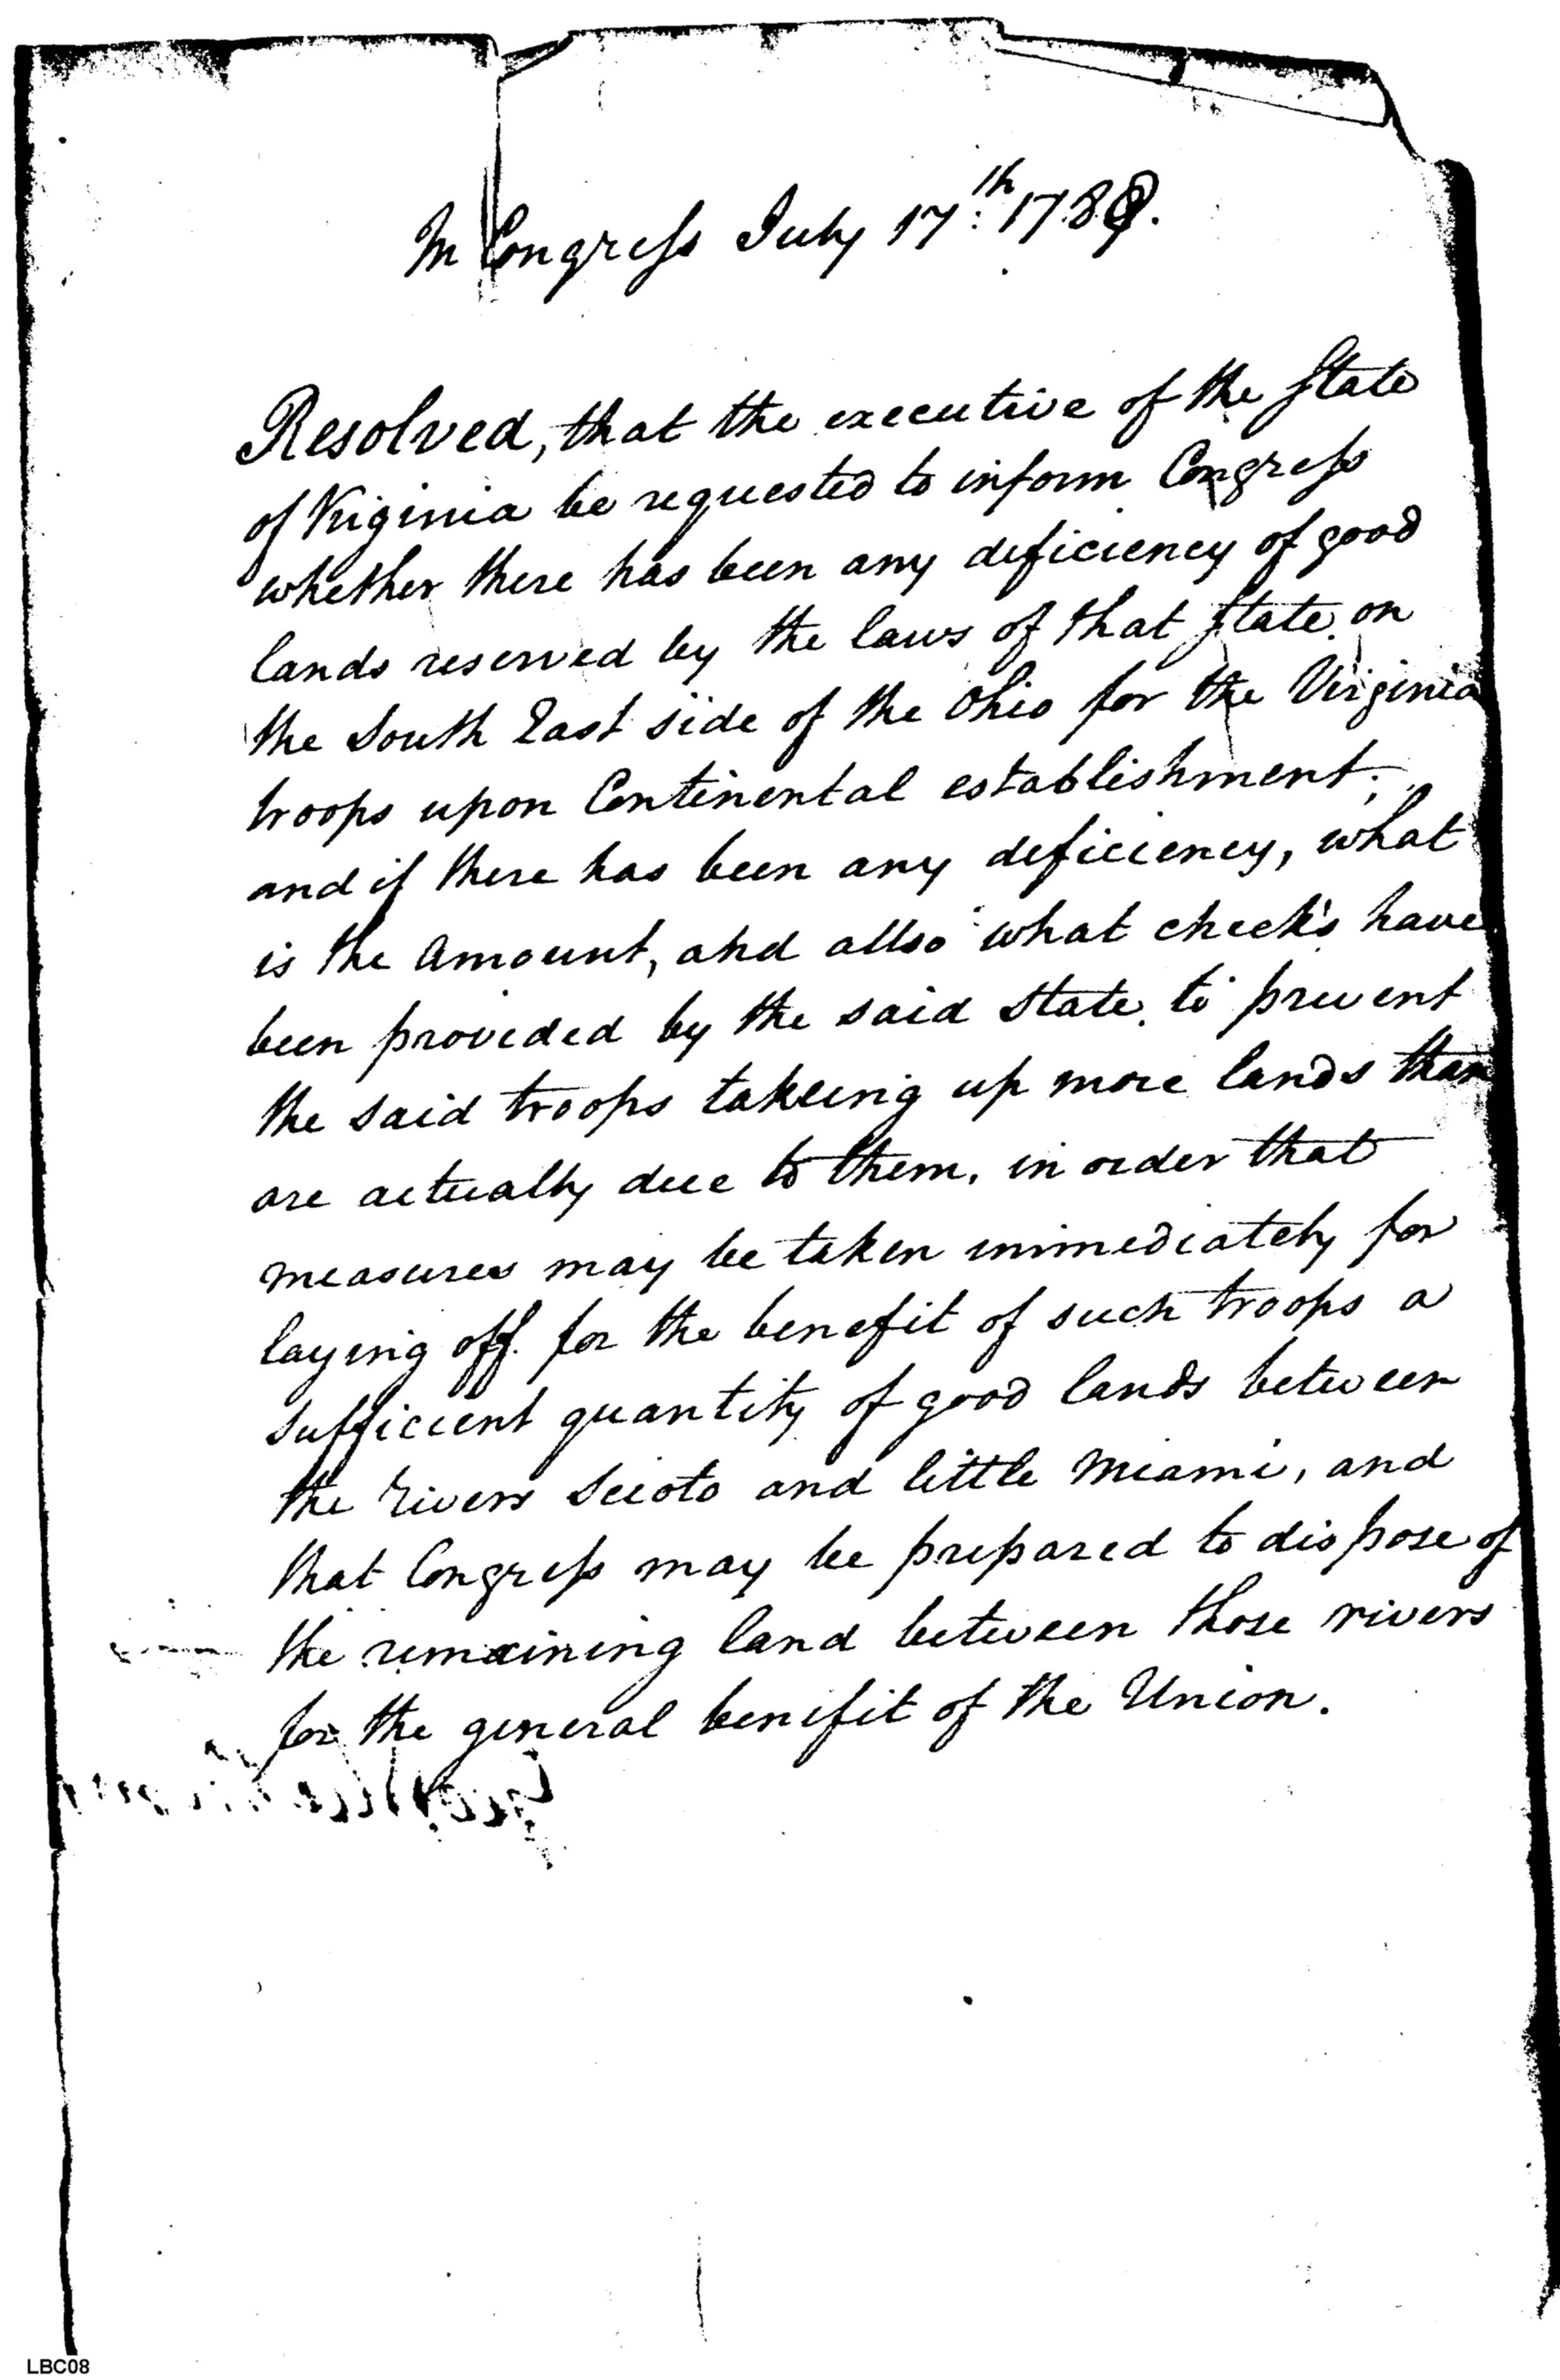 In Congress July 17th: 178
Resolved, that the executive of the State
of Virginia be requested to inform Congress
whether there has been any deficiency of good
lands reserved by the laws of that State on
the South East side of the Ohio for the Virginia
troops upon Continental establishment;
and if there has been any deficiency, what
is the Amount, and allso what check's have
been provided by the said State to prevent
the said troops takeing up more lands than
are actually due to them, in order that
measures may be taken immediately for
laying off for the benefit of such troops a
sufficient quantity of good lands between
the rivers Scioto and little Miami, and
that Congress may be prepared to dispose of
the remaining land between those rivers
for the general benifit of the Union.
LBC08